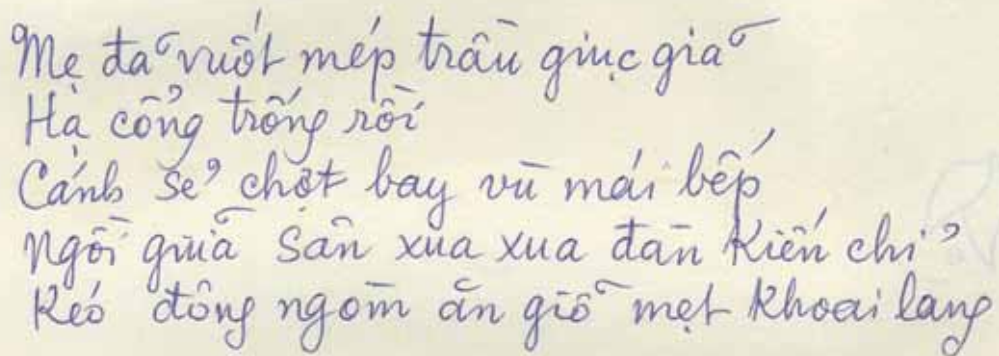 Mẹ đã vuốt mép trầu giục giã
Hạ cổng trống rồi
Cánh sẻ chợt bay vù mái bếp
Ngồi giữa sân xua xua đàn kiến chỉ
Kéo đông ngòm ăn giỗ mẹt khoai lang